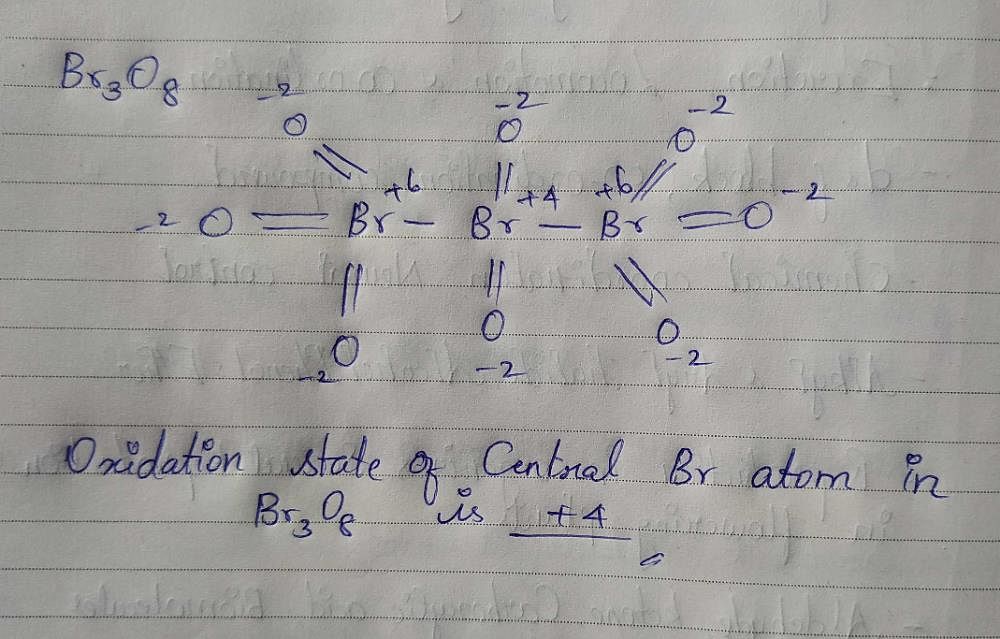 Br₃O₈
-2 -2 -2
O O O
+6 +4 +6 -2
-2 O = Br - Br - Br = O
O O O
-2 -2 -2
Oxidation state of Central Br atom in
Br₃O₈ is +4